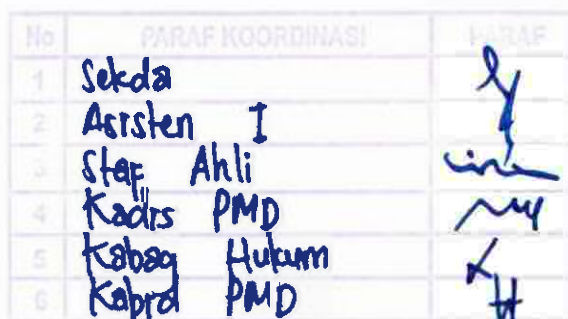 No PARAF KOORDINASI PARAF
1 Sekda
2 Asisten I
3 Staf Ahli
4 Kadis PMD
5 Kabag Hukum
6 Kabid PMD